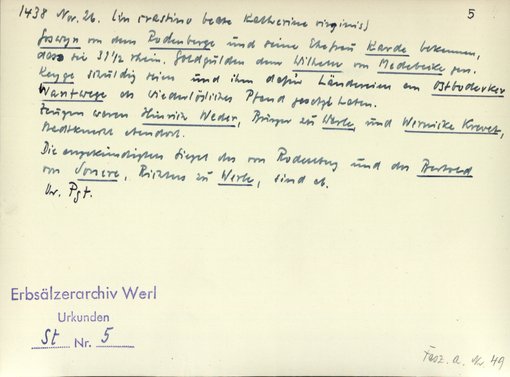 1438 Nov. 26. (in crastino beate Katherine virginis) 5
Goswyn von dem Rodenberge und seine Ehefrau Karde bekennen,
dass sie 31 1/2 rhein. Goldgulden dem Wilhelm von Medebeike gen.
Keyge schuldig seien und ihm dafür Ländereien am Ostboderker
Wantwege als wiederlösliches Pfand gesetzt haben.
Zeugen waren Hinrix Weder, Bürger zu Werle, und Werneike Krevet,
Stadtknecht ebendort.
Die angekündigten Siegel des von Rodenberg und des Bertold
von , Richters zu Werle, sind ab.
Ur. Pgt.
Erbsälzerarchiv Werl
Urkunden
St Nr. 5
Fasz. a. Nr. 49